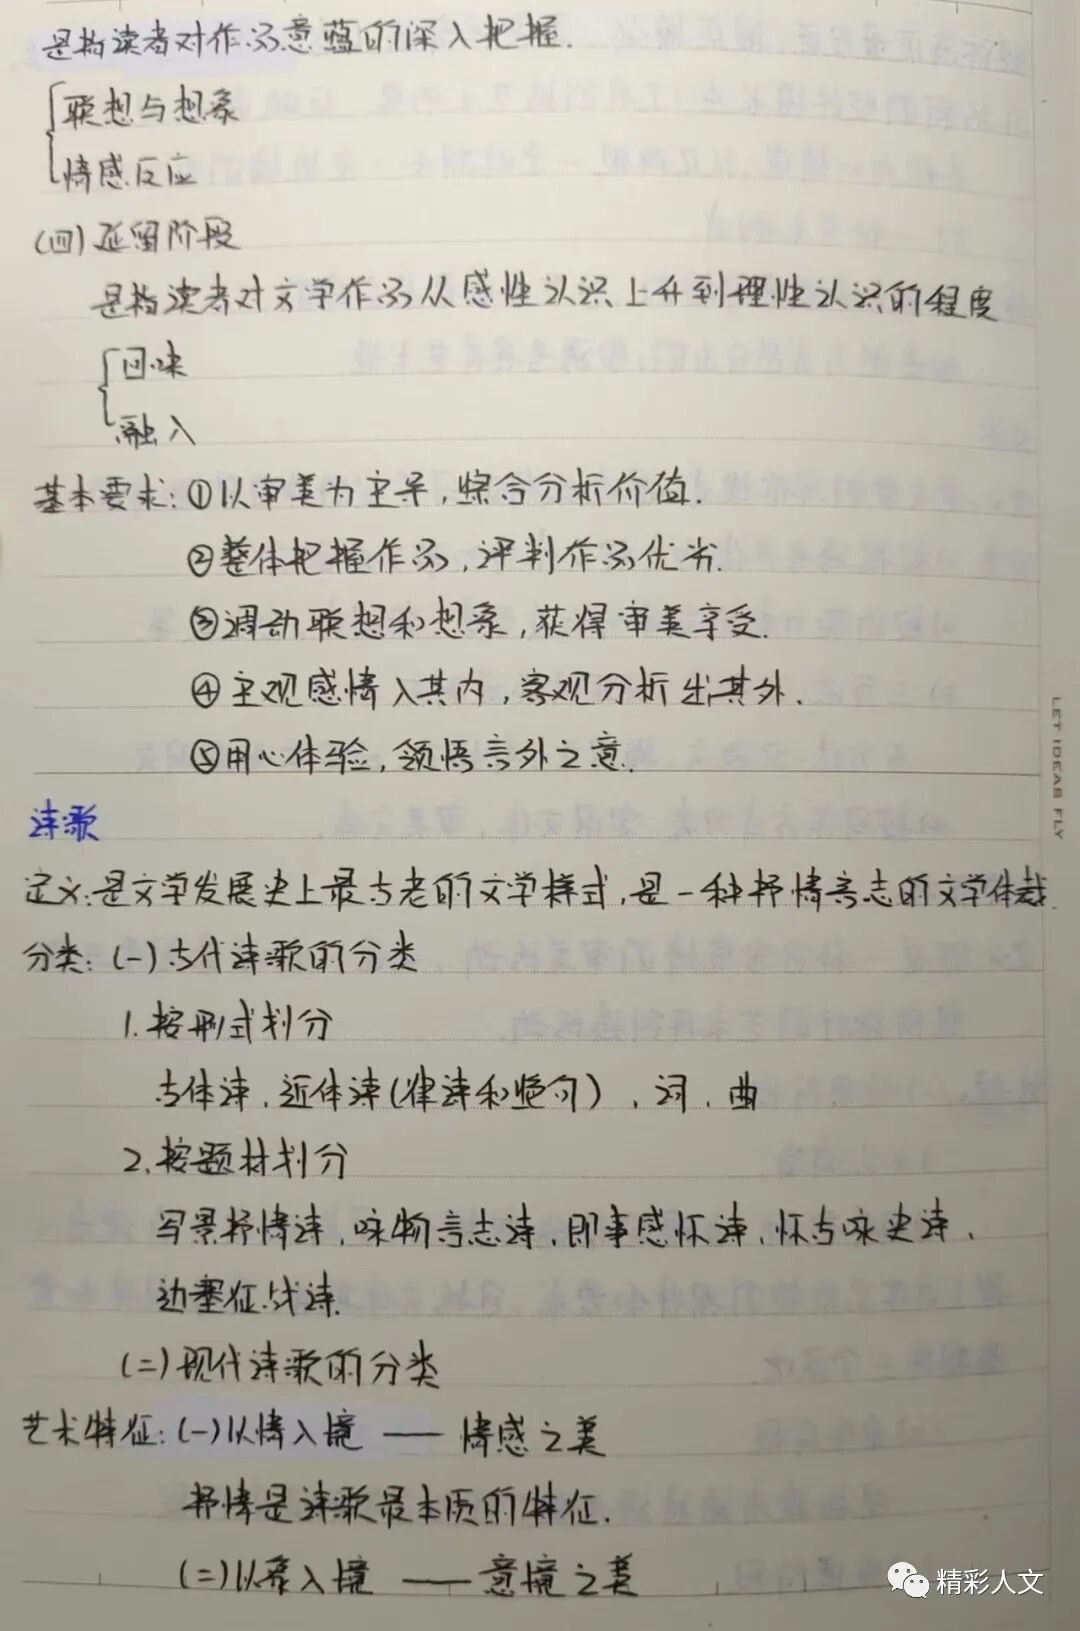 是指读者对作品意蕴的深入把握.
联想与想象
情感反应
(四)延留阶段
是指读者对文学作品从感性认识上升到理性认识的程度
回味
融入
基本要求:①以审美为主导,综合分析价值.
②整体把握作品,评判作品优劣.
③调动联想和想象,获得审美享受.
④主观感情入其内,客观分析出其外.
⑤用心体验,领悟言外之意.
诗歌
定义:是文学发展史上最古老的文学样式,是一种抒情言志的文学体裁.
分类:(一)古代诗歌的分类
1.按形式划分
古体诗、近体诗(律诗和绝句)、词、曲
2.按题材划分
写景抒情诗、咏物言志诗、即事感怀诗、怀古咏史诗、
边塞征战诗.
(二)现代诗歌的分类
艺术特征:(一)以情入境 —— 情感之美
抒情是诗歌最本质的特征.
(二)以象入境 —— 意境之美
LET IDEAS FLY
精彩人文